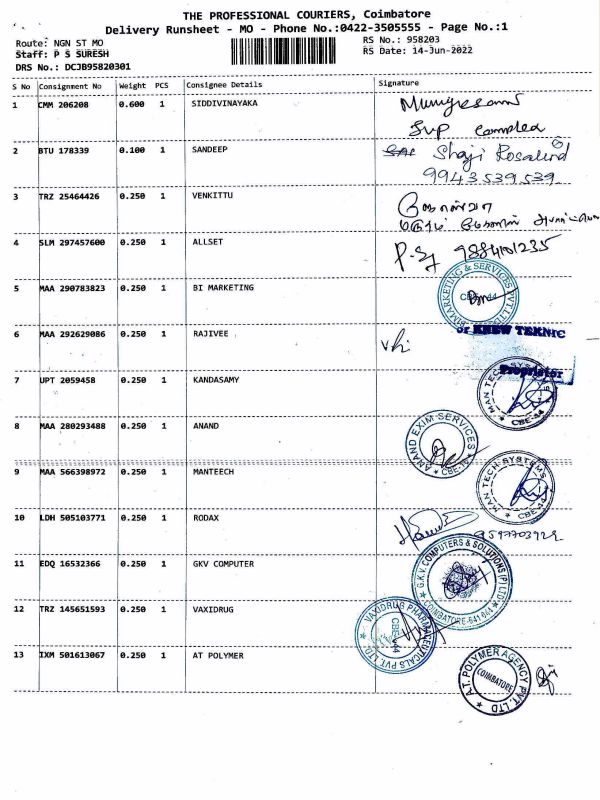 THE PROFESSIONAL COURIERS, Coimbatore
Delivery Runsheet - MO - Phone No.:0422-3505555 - Page No.:1
Route: NGN ST MO
RS No.: 958203
Staff: P S SURESH
RS Date: 14-Jun-2022
DRS No.: DCJB95820301
S No Consignment No Weight PCS Consignee Details Signature
1 CMM 206208 0.600 1 SIDDIVINAYAKA
2 BTU 178339 0.100 1 SANDEEP Shaji Rosalind
9943539539
3 TRZ 25464426 0.250 1 VENKITTU
4 SLM 297457600 0.250 1 ALLSET 9884101235
5 MAA 290783823 0.250 1 BI MARKETING
MARKETING & SERVICES PVT LTD
CBE-44
6 MAA 292629086 0.250 1 RAJIVEE
or KREW TEKNIC
Proprietor
7 UPT 2059458 0.250 1 KANDASAMY
MAN TECH SYSTEMS
CBE-44
8 MAA 280293488 0.250 1 ANAND
ANAND EXIM SERVICES
9 MAA 566398972 0.250 1 MANTEECH
MAN TECH SYSTEMS
CBE-44
10 LDH 505103771 0.250 1 RODAX
11 EDQ 16532366 0.250 1 GKV COMPUTER
G.K.V. COMPUTERS & SOLUTIONS (P) LTD
COIMBATORE-641 044
12 TRZ 145651593 0.250 1 VAXIDRUG
VAXIDRUG PHARMACEUTICALS PVT. LTD.
CBE-44
13 IXM 501613067 0.250 1 AT POLYMER
A.T. POLYMER AGENCY PVT. LTD
COIMBATORE